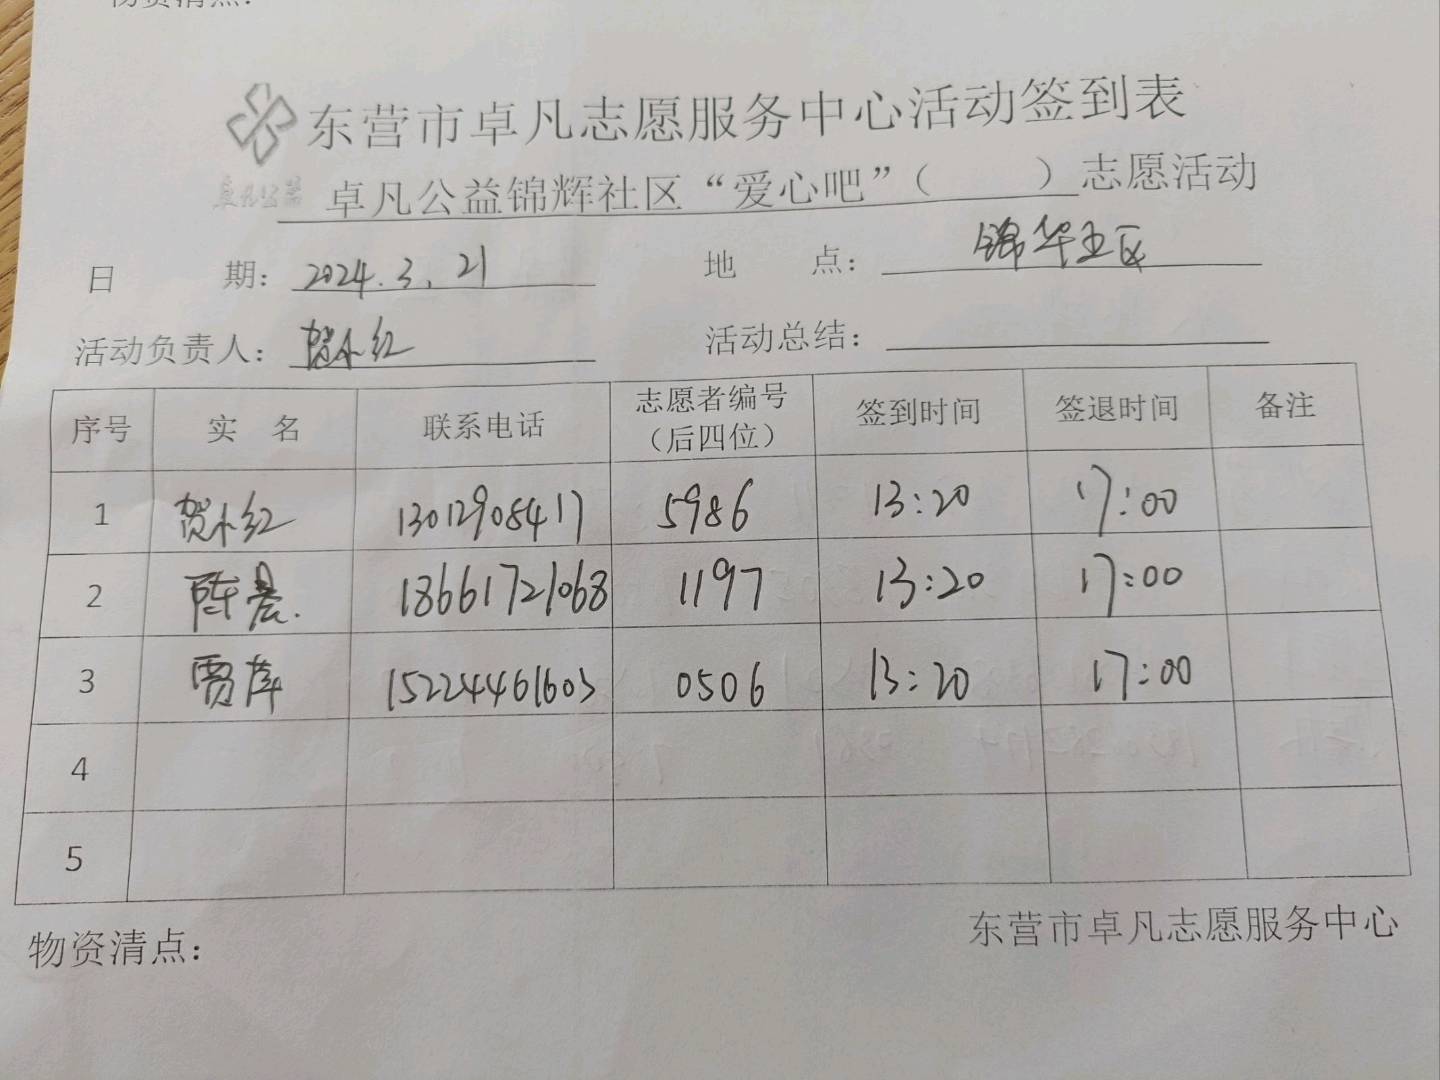 物资清点：
东营市卓凡志愿服务中心活动签到表
卓凡公益
卓凡公益锦辉社区“爱心吧”（ ）志愿活动
日 期： 2024.3.21 地 点： 锦华五区
活动负责人： 贺小红 活动总结：
序号 实 名 联系电话 志愿者编号（后四位） 签到时间 签退时间 备注
1 贺小红 13012908417 5986 13:20 17:00
2 陈晨 18661721068 1197 13:20 17:00
3 贾萍 15224461603 0506 13:20 17:00
4
5
物资清点： 东营市卓凡志愿服务中心